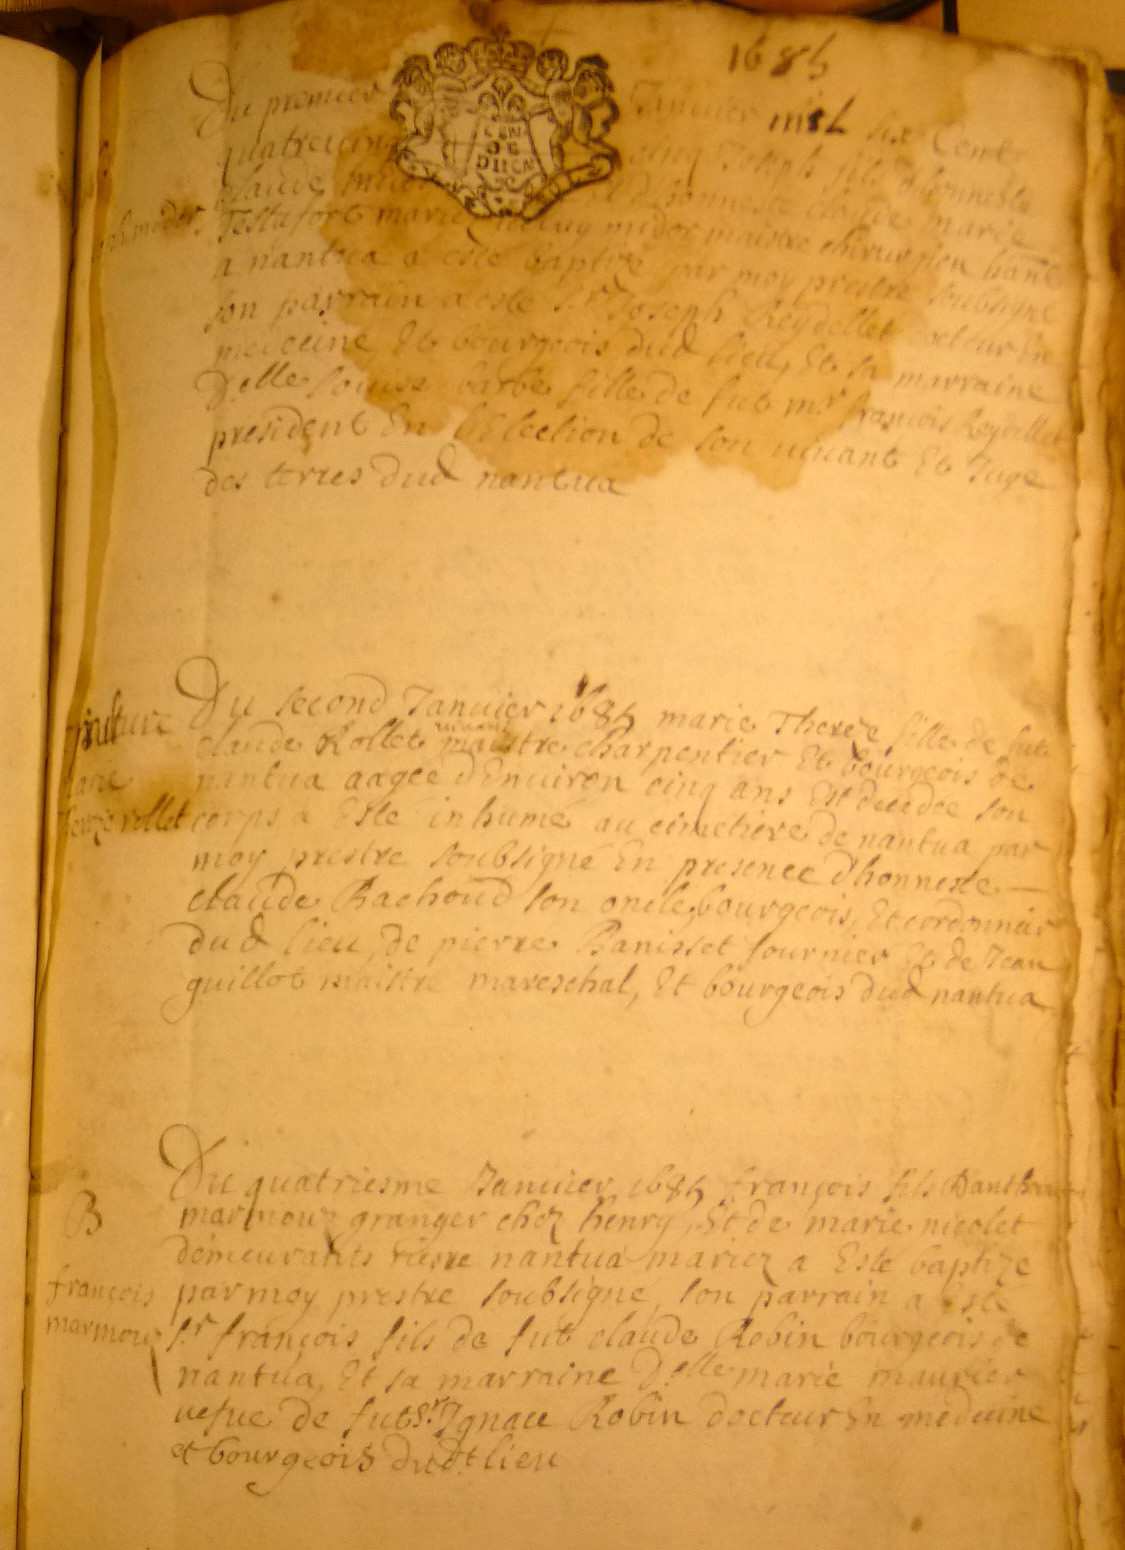 1685
Du premier Janvier mil six Cent
quatrevingt cinq Joseph fils d'honneste
claude d'honneste claude marie
Testefort mariez maistre chirurgien habitant
a nantua a esté baptizé par moy prestre soubsigné
son parrain a esté Sr Joseph Reydellet docteur En
medecine Et bourgeois dud lieu, Et sa marraine
Delle Louise barbe fille de fut mr francois Reydellet
president En l'Election de son vivant Et Juge
des terres dud nantua
GEN
DE
DIJON
sepulture
marie
thereze rollet
Du second Janvier 1685 marie Thereze fille de fut
claude Rollet vivant maistre charpentier Et bourgeois de
nantua aagée d'Environ cinq ans Est decedée son
corps a Esté inhumé au cimetiere de nantua par
moy prestre soubsigné En presence d'honneste —
claude Bachoud son oncle, bourgeois, Et cordonnier
dud lieu, de pierre Banisset fournier Et de Jean
guillot maistre mareschal, Et bourgeois dud nantua
B
françois
marmoux
Du quatriesme Janvier 1685 françois fils Danthoine
marmoux granger chez henry, Et de marie nicolet
demeurants riere nantua mariez a Esté baptize
par moy prestre soubsigné, son parrain a esté
Sr françois fils de fut claude Robin bourgeois de
nantua, Et sa marraine Delle marie maurier
vefue de fut Sr Ignace Robin docteur En medecine
et bourgeois dudt lieu